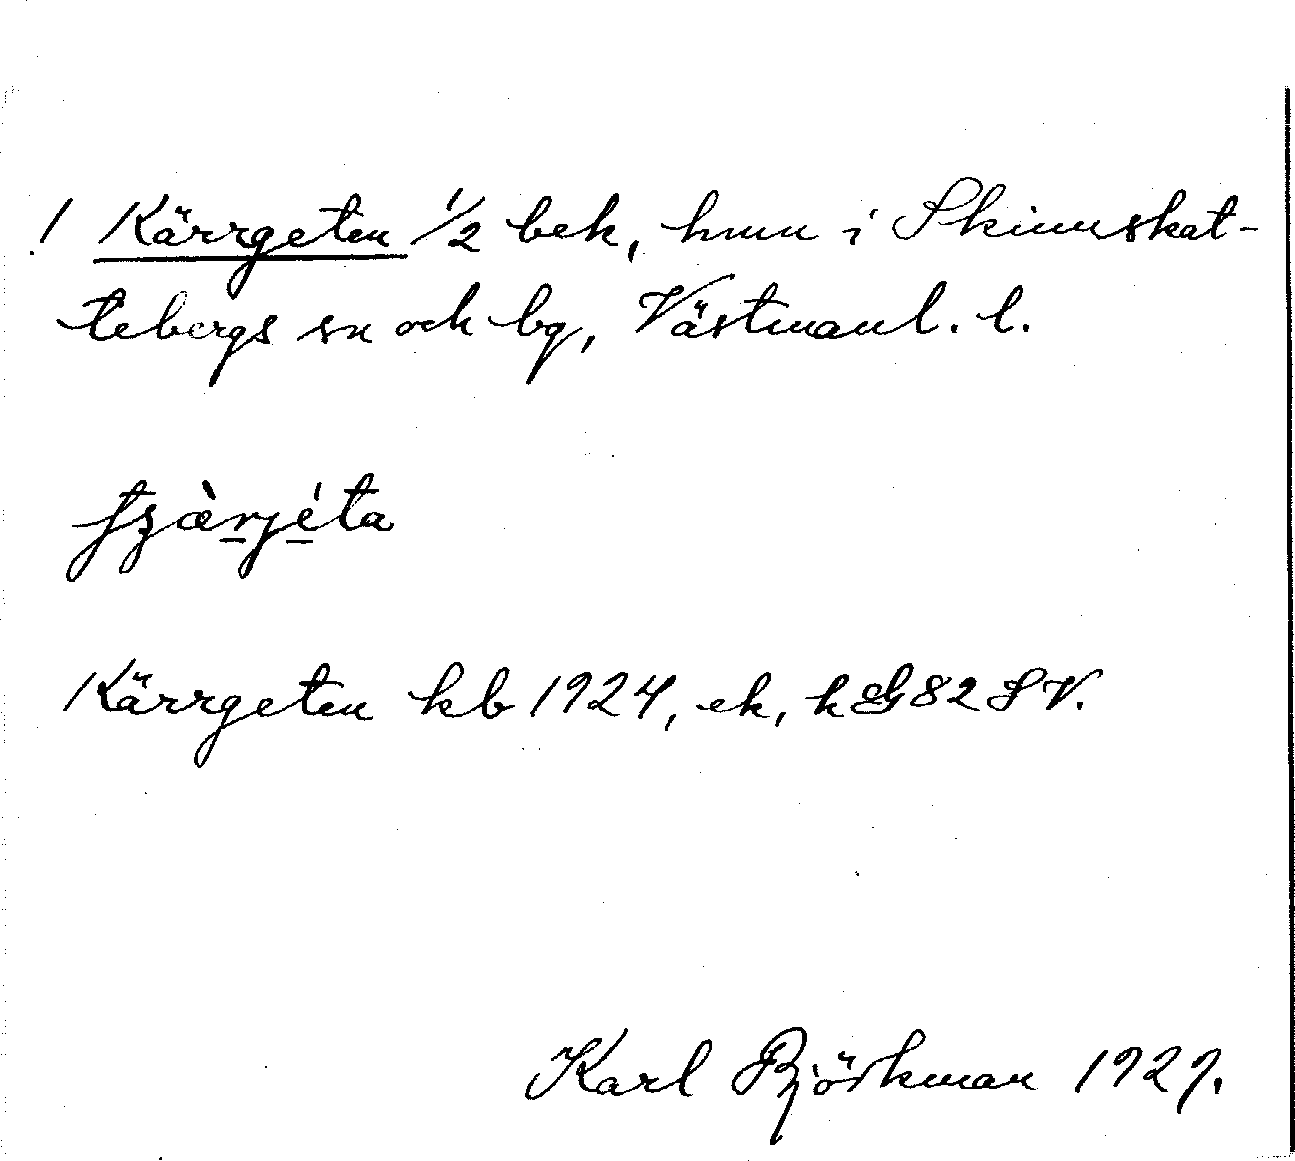 ! Kärrgeten 1/2 bek, hmn i Skinnskat-
tebergs sn och bg, Västmanl. l.
Kärrgeten kb 1924, ek, k G82 SV.
Karl Björkman 1927.